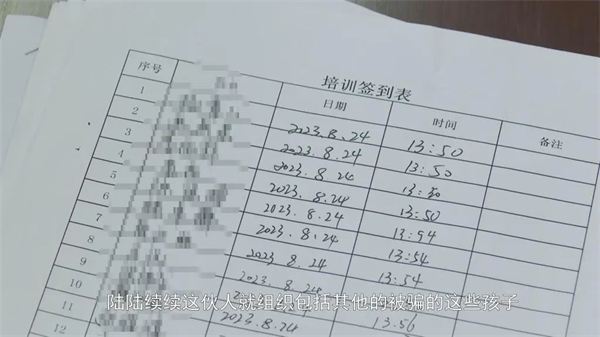 培训签到表
序号 日期 时间 备注
1 2023.8.24 13:50
2 2023.8.24 13:50
3 2023.8.24 13:30
4 2023.8.24 13:50
5 2023.8.24 13:54
6 2023.8.24 13:54
7 2023.8.24 13:54
8 2023.8.24
9 13:56
10 2023.8.24
11
12
陆陆续续这伙人就组织包括其他的被骗的这些孩子